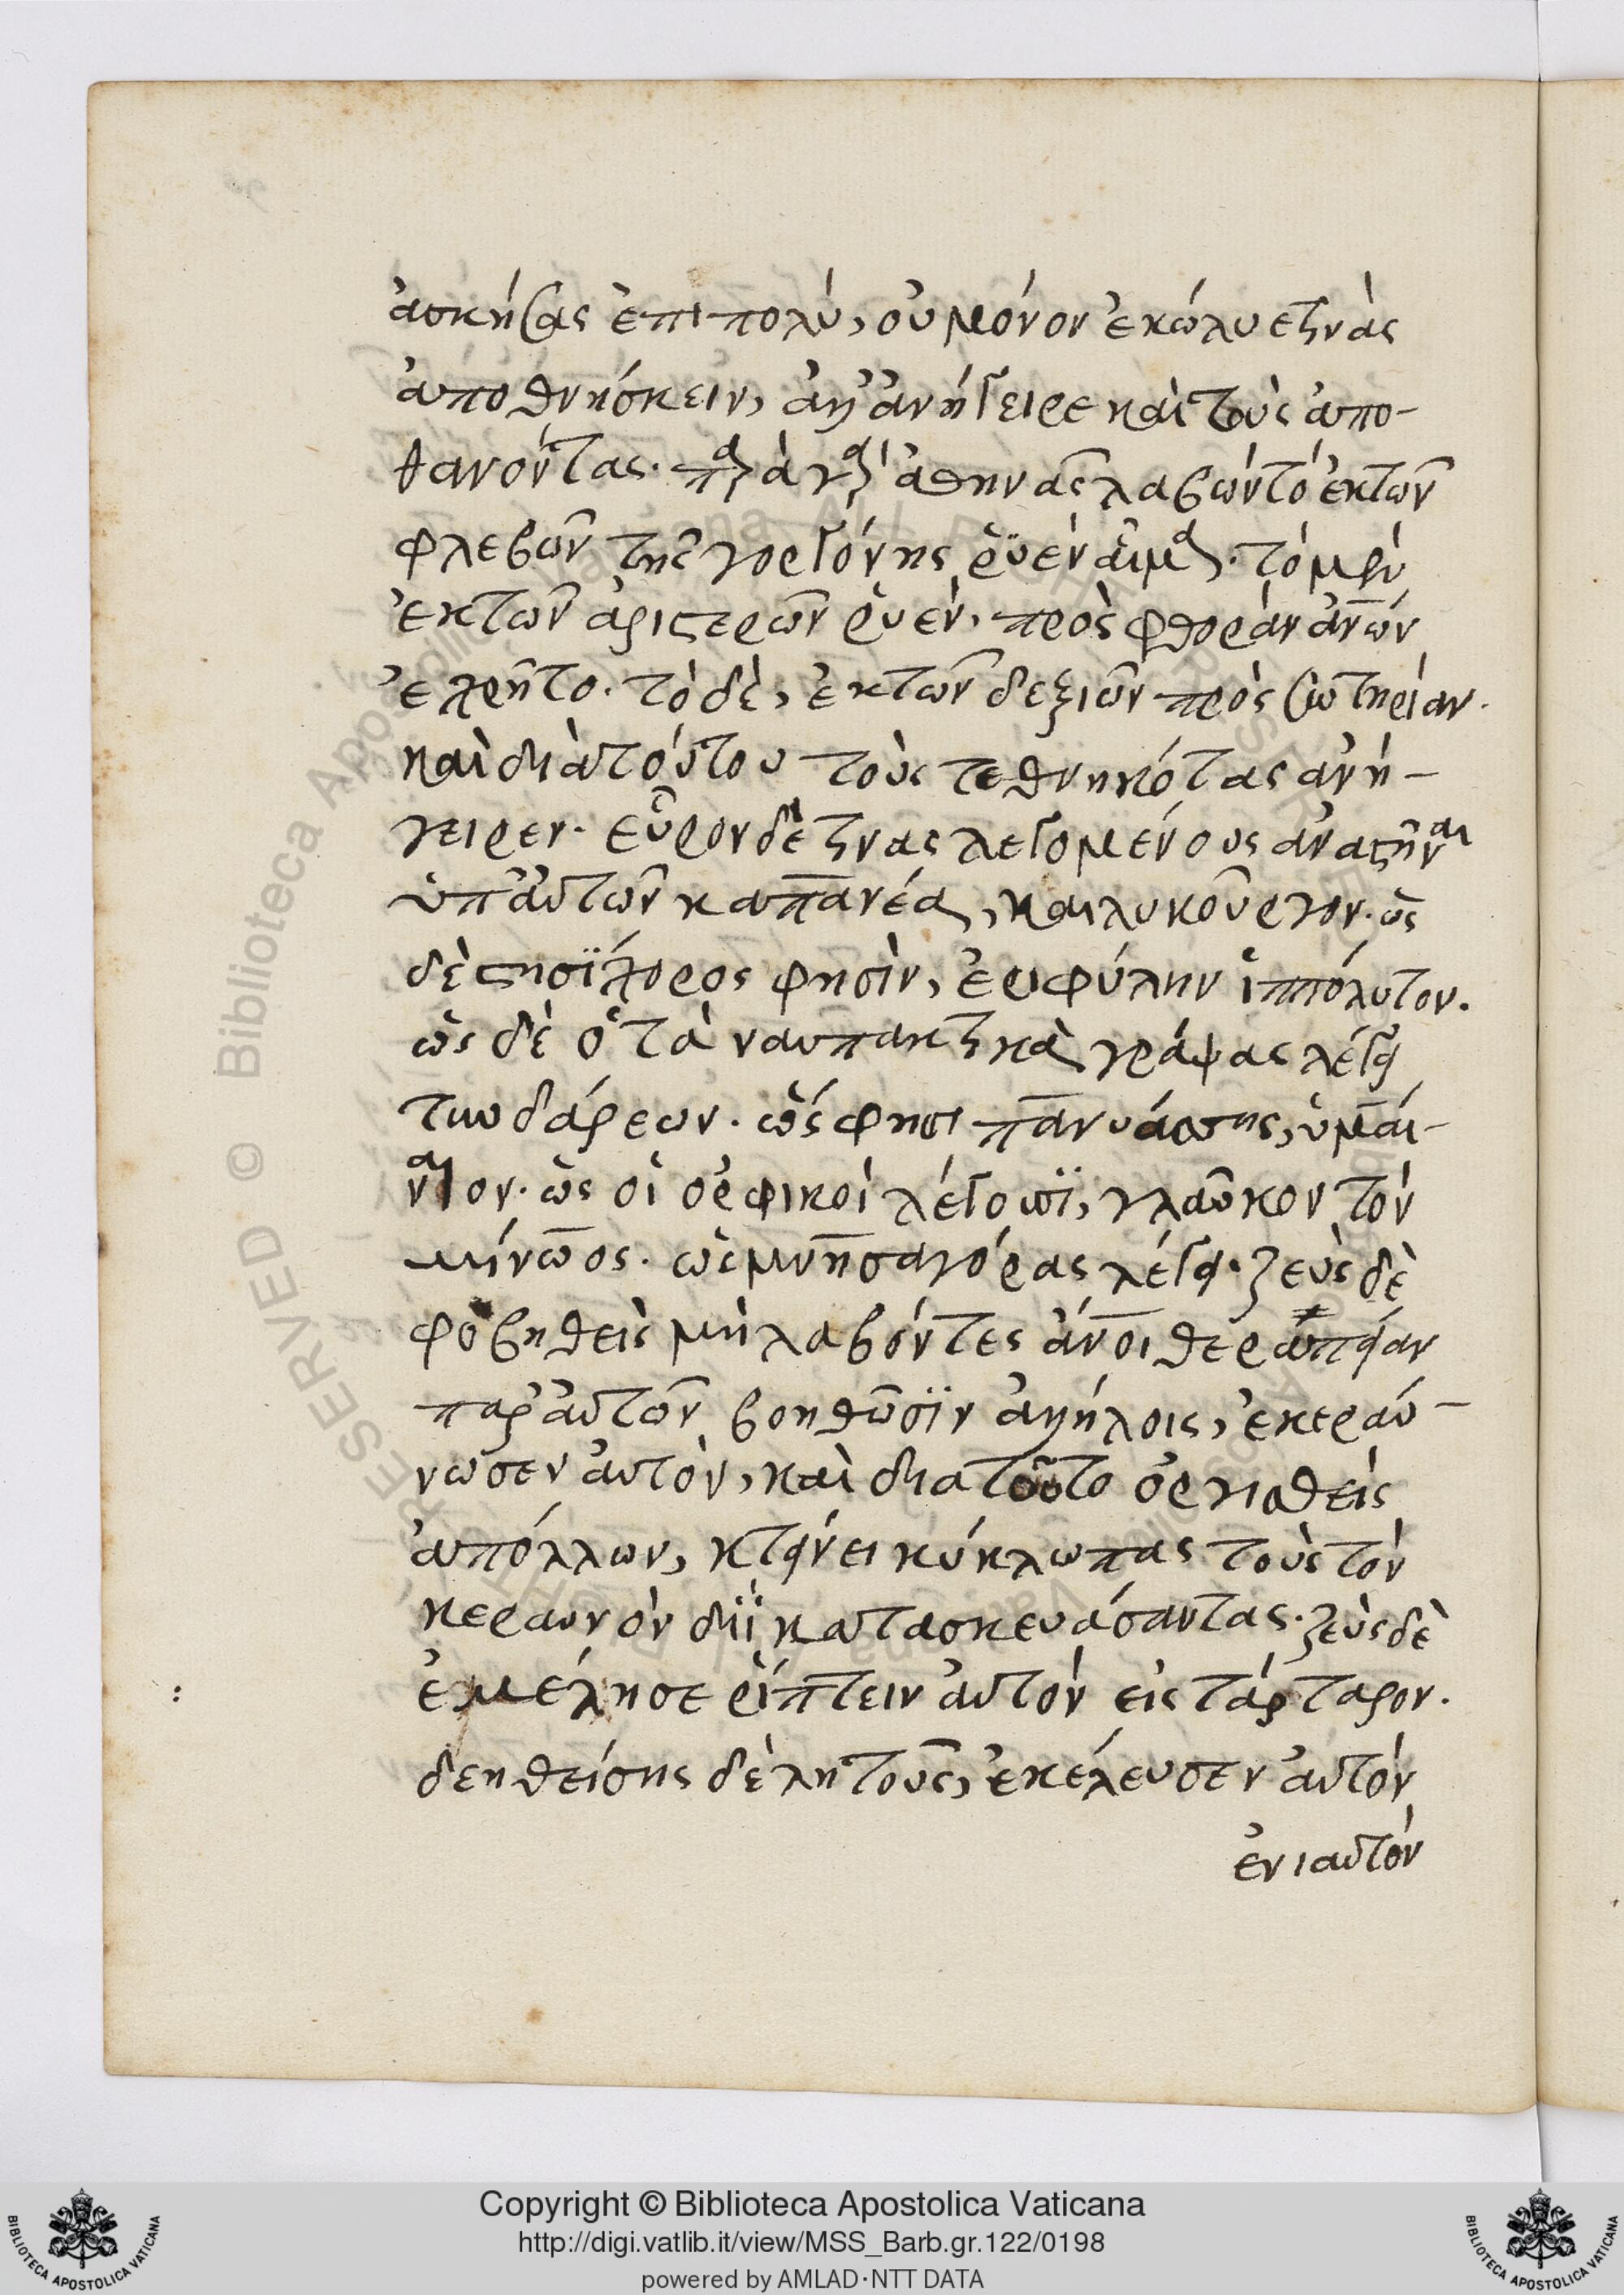 ἀσκήσας ἐπιπολύ, οὐ μόνον ἐκώλυε τινὰς
ἀποθνήσκειν, ἀλλ' ἀνήγειρε καὶ τοὺς ἀπο-
θανόντας. παρὰ γὰρ ἀθηνᾶς λαβὼν τὸ ἐκ τῶν
φλεβῶν τῆς γοργόνης ῥϋεν αἷμα. τὸ μὲν
ἐκ τῶν ἀριστερῶν ῥυὲν, πρὸς φθορὰν ἀνων
ἐχρῆτο. τὸ δὲ, ἐκ τῶν δεξιῶν πρὸς σωτηρίαν.
καὶ διὰ τούτου τοὺς τεθνηκότας ἀνή-
γειρεν. εὗρον δὲ τινας λεγομένους ἀναστῆναι
ὑπ' αὐτῶν καπανέα, καὶ λυκοῦργον. ὡς
δὲ στησΐχορος φησὶν, ἐριφύλην ἱππόλυτον.
ὡς δὲ ὁ τὰ ναυπακτικὰ γράψας λέγει
τυνδάρεων. ὥς φησι πανυάσσης, ὑμαί-
ναιον. ὡς οἱ ὀρφικοὶ λέγουσϊ, γλαῦκον τὸν
μίνωος. ὡς μνησαγόρας λέγει. ζεὺς δὲ
φοβηθεὶς μὴ λαβόντες ἄνοι θεραπείαν
παρ' αὐτῶν βοηθῶσϊν ἀλλήλοις, ἐκεραύ-
νωσεν αὐτὸν, καὶ διατοῦτο ὀργισθεὶς
ἀπόλλων, κτείνει κύκλωπας τοὺς τὸν
κεραυνὸν διῒ κατασκευάσαντας. ζεὺς δὲ
ἐμέλησε ῥίπτειν αὐτὸν εἰς τάρταρον.
δεηθείσης δὲ λητοῦς, ἐκέλευσεν αὐτὸν
ἐνιαυτὸν
Copyright © Biblioteca Apostolica Vaticana
http://digi.vatlib.it/view/MSS_Barb.gr.122/0198
powered by AMLAD·NTT DATA